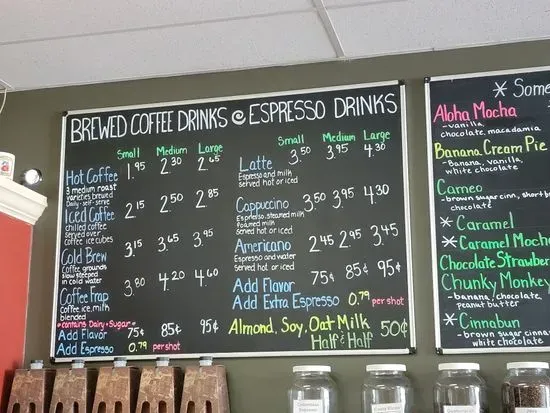 BREWED COFFEE DRINKS ESPRESSO DRINKS
Small Medium Large
Hot Coffee 1.95 2.30 2.65
3 medium roast
varieties brewed
Daily - self-serve
Iced Coffee 2.15 2.50 2.85
chilled coffee
served over
coffee ice cubes
Cold Brew 3.15 3.65 3.95
Coffee grounds
slow steeped
in cold water
Coffee Frap 3.80 4.20 4.60
Coffee, ice, milk
blended
*contains Dairy + Sugar*
Add Flavor 75¢ 85¢ 95¢
Add Espresso 0.79 per shot
Small Medium Large
Latte 3.50 3.95 4.30
Espresso and milk
served hot or iced
Cappuccino 3.50 3.95 4.30
Espresso, steamed milk
foamed milk
Served hot or iced
Americano 2.45 2.95 3.45
Espresso and water
served hot or iced
Add Flavor 75¢ 85¢ 95¢
Add Extra Espresso 0.79 per shot
Almond, Soy, Oat Milk 50¢
Half & Half
* Some
Aloha Mocha
- vanilla,
chocolate, macadamia
Banana Cream Pie
- Banana, vanilla,
white chocolate
Cameo
- brown sugar cinn, shortb
chocolate
* Caramel
* Caramel Mocha
Chocolate Strawber
Chunky Monkey
- banana, chocolate,
peanut butter
* Cinnabun
- brown sugar cinna
white chocolate